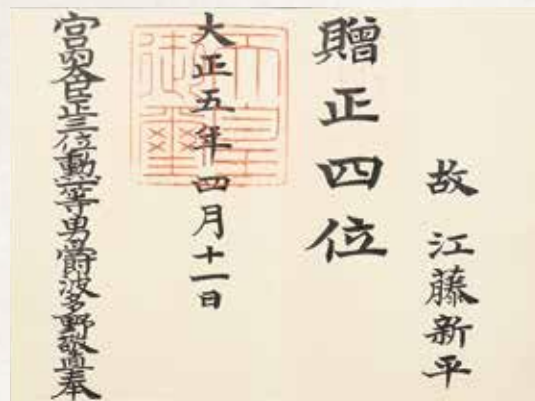 故 江藤新平
贈正四位
大正五年四月十一日
天皇御璽
宮内大臣正三位勲一等男爵波多野敬直奉